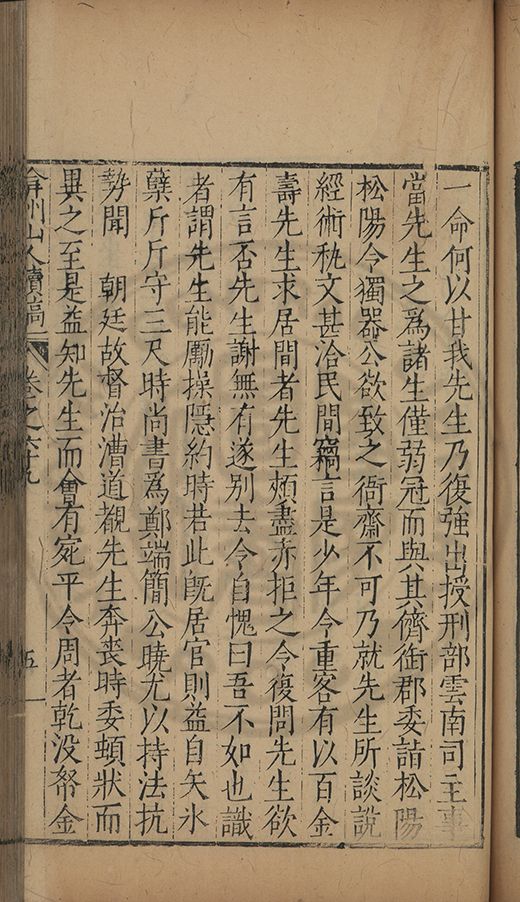 一命何以甘我先生乃復強出授刑部雲南司主事
當先生之爲諸生僅弱冠而與其儕銜郡委詣松陽
松陽令獨器公欲致之衙齋不可乃就先生所談說
經術秇文甚洽民間竊言是少年令重客有以百金
壽先生求居間者先生頰盡赤拒之令復問先生欲
有言否先生謝無有遂別去令自愧曰吾不如也識
者謂先生能勵操隱約時若此旣居官則益自矢氷
櫱斤斤守三尺時尚書爲鄭端簡公曉尤以持法抗
勢聞　朝廷故督治漕道覩先生奔喪時委頓狀而
異之至是益知先生而會有宛平令周者乾没帑金
弇州山人續稿　卷之六十九　五